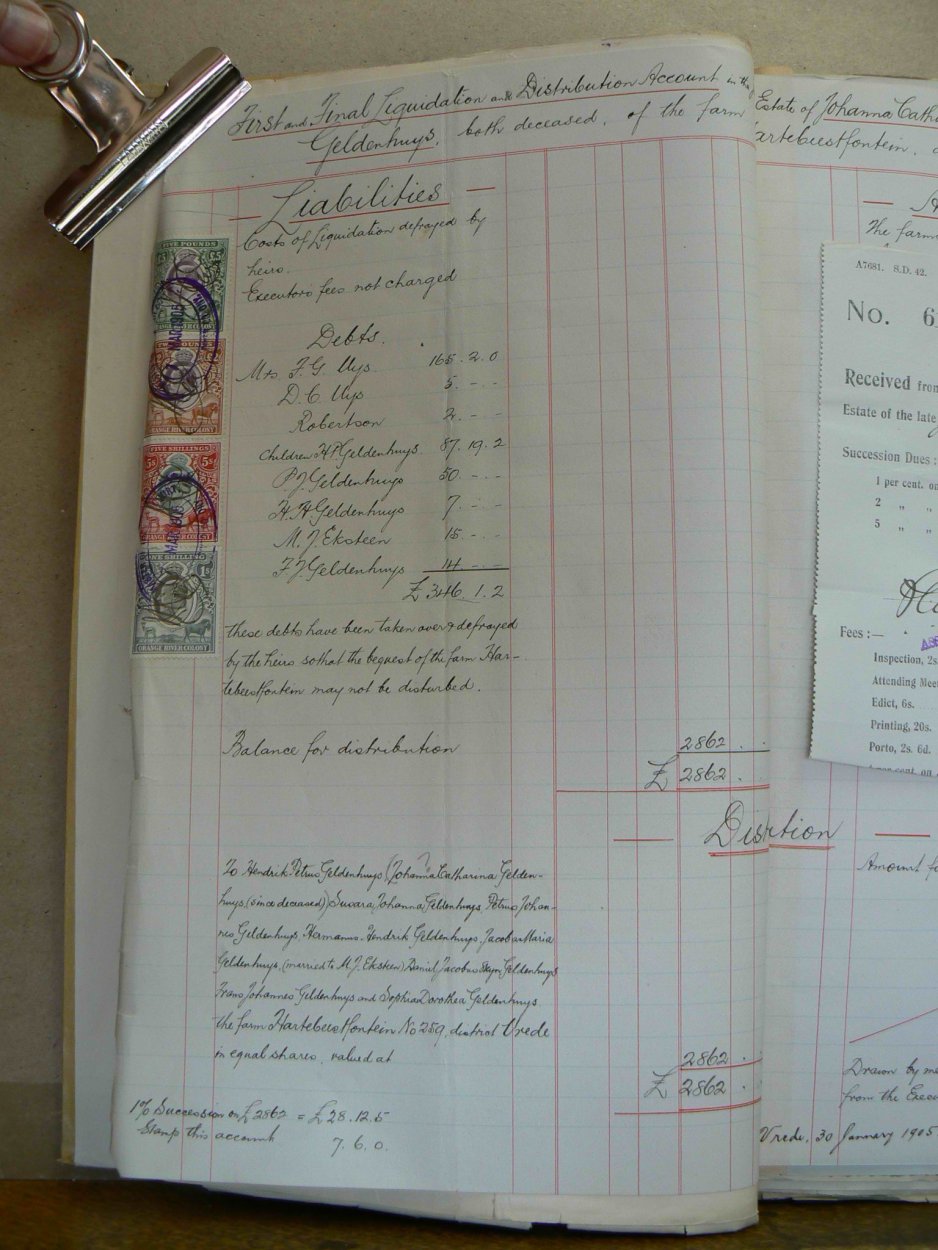 First and Final Liquidation and Distribution Account in the
Geldenhuys, both deceased, of the farm
Estate of Johanna Cath
artebeestfontein.
Liabilities
Costs of Liquidation defrayed by
heirs.
Executors fees not charged
Debts.
Mrs F. G. Uys. 165. 2. 0
D. C. Uys 5. - . -
Robertson 2. - . -
Children H P Geldenhuys 87. 19. 2
P J Geldenhuys 50. - . -
H. H Geldenhuys 7. - . -
M. J. Eksteen 15. - . -
F J Geldenhuys 14 - . -
£ 346. 1. 2
these debts have been taken over & defrayed
by the heirs so that the bequest of the farm Har-
tebeestfontein may not be disturbed.
Balance for distribution 2862 . .
£ 2862 .
Distrition
To Hendrik Petrus Geldenhuys (Johanna Catharina Gelden-
huys, (since deceased) Susara Johanna Geldenhuys, Petrus Johan-
nes Geldenhuys, Hermanus Hendrik Geldenhuys, Jacoba Maria
Geldenhuys, (married to M. J. Eksteen) Daniel Jacobus Geldenhuys
Frans Johannes Geldenhuys and Sophia Dorothea Geldenhuys
the farm Hartebeestfontein No 259, district Vrede
in equal shares, valued at 2862 . .
£ 2862 . .
1% Succession on £2862 = £28. 12. 5
Stamp this account 7. 6. 0.
FIVE POUNDS
£5 £5
ORANGE RIVER COLONY
ORANGE RIVER COLONY
FIVE SHILLINGS
5s 5s
ORANGE RIVER COLONY
ONE SHILLING
ORANGE RIVER COLONY
The farm
A7681. S.D. 42.
No. 6
Received from
Estate of the late
Succession Dues :
1 per cent. on
2 " "
5 " "
Fees :—
Inspection, 2s.
Attending Mee
Edict, 6s.
Printing, 20s.
Porto, 2s. 6d.
Amount fo
Drawn by me
from the Execu
Vrede, 30 January 1905